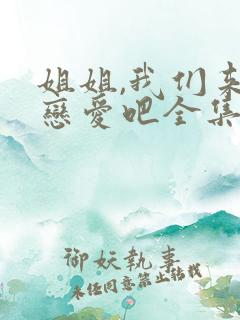 姐姐,我们来
戀愛吧全集
御妖執事
未经同意禁止转载